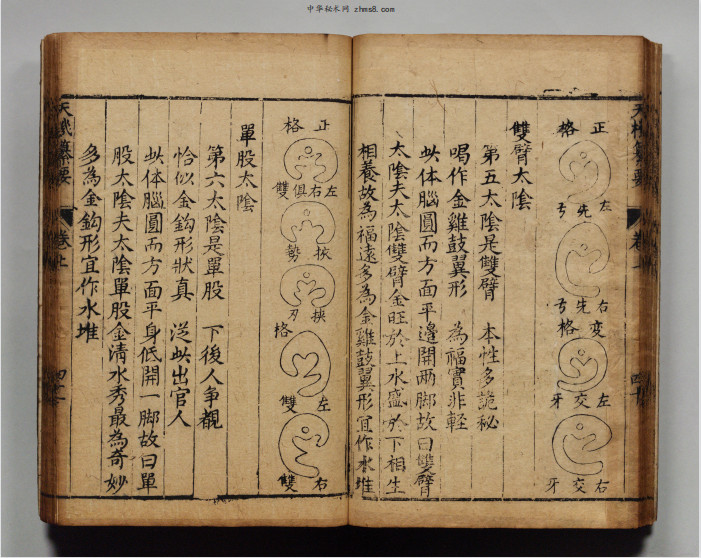 中华秘术网 zhms8.com
天機纂要
卷上
正格
左先弓
右先弓
变格
左交牙
右交牙
雙臂太陰
第五太陰是雙臂 本性多詭秘
唱作金雞鼓翼形 為福實非輕
此体腦圓而方面平邊開两脚故曰雙臂
太陰夫太陰雙臂金旺於上水盛於下相生
相養故為福遠多為金雞鼓翼形宜作水堆
正格
左右俱雙
挾勢
挾刃
格
左雙
右雙
單股太陰
第六太陰是單股 下後人争觀
恰似金鈎形状真 泛此出官人
此体腦圓而方面平身低開一脚故曰單
股太陰夫太陰單股金清水秀最為奇妙
多為金鈎形宜作水堆
天機纂要
卷上